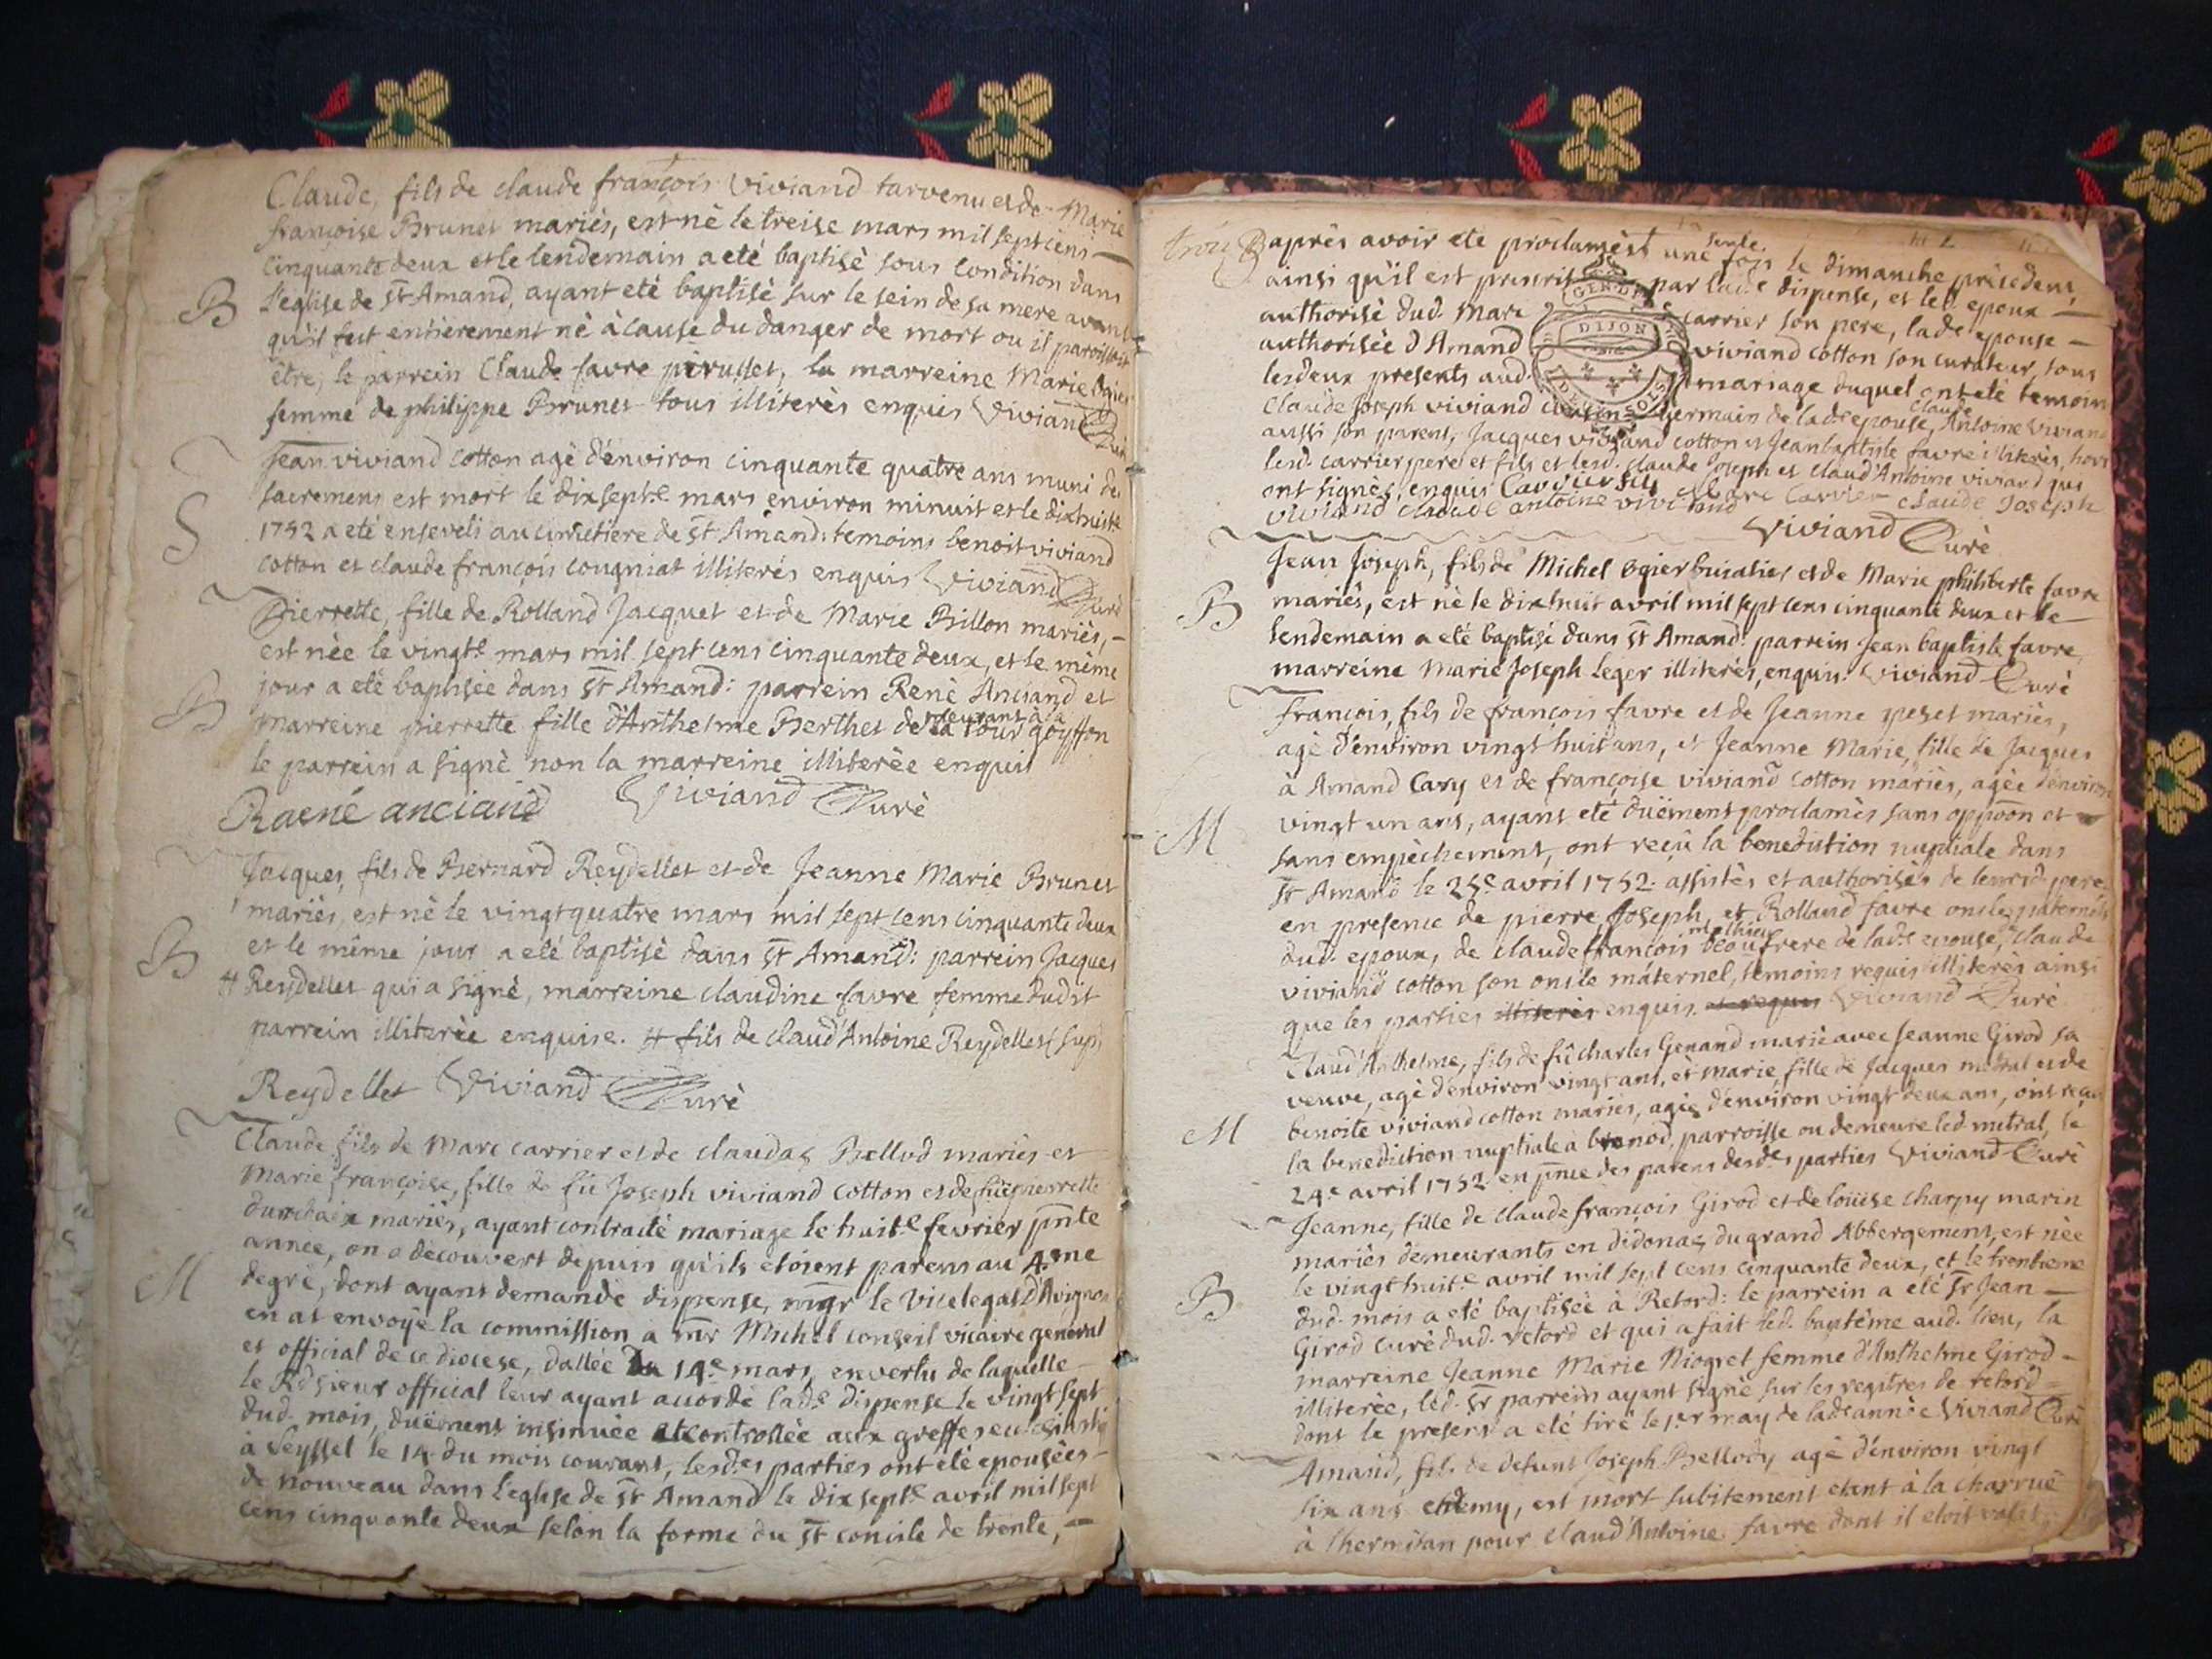 Claude, fils de claude françois viviand tarvenu et de Marie
françoise Brunet mariès, est nè le treise mars mil sept cens
cinquante deux et le lendemain a etè baptisè sous condition dans
B
l'eglise de St Amand, ayant etè baptisè sur le sein de sa mere avant
qu'il fust entièrement nè à cause du danger de mort ou il paroissoit
être, le parrein Claude favre perusset, la marreine Marie
femme de philippe Brunet tous illiterès enquis Viviand Curè
Jean viviand cotton agè d'environ cinquante quatre ans muni des
sacremens est mort le dixsept.e mars environ minuit et le dixhuit.e
S
1752 a etè enseveli au cimetiere de St Amand: temoins benoit viviand
cotton et claude françois cougniat illiterés enquis Viviand Curè
Pierrette, fille de Rolland Jacquet et de Marie Billon mariès,
est nèe le vingt.e mars mil sept cens cinquante deux, et le même
jour a etè baptisèe dans St Amand: parrein Renè Anciand et
B
marreine pierrette fille d'Anthelme Berthet demeurant à la tour goyffon
le parrein a signè non la marreine illiterèe enquis
Raené anciand Viviand Curè
Jacques, fils de Bernard Reydellet et de Jeanne Marie Brunet
mariès, est nè le vingtquatre mars mil sept cens cinquante deux
B
et le même jour a etè baptisè dans St Amand: parrein Jacques
# Reydellet qui a signè, marreine claudine favre femme dudit
parrein illiterèe enquise. # fils de claud'Antoine Reydellet
Reydellet Viviand Curè
Claude fils de Marc carrier et de claudaz Bellod mariès et
Marie françoise, fille de fû Joseph viviand cotton et de fûe pierrette
mariès, ayant contractè mariage le huit.e fevrier pnte
M
annee, on a dècouvert depuis qu'ils etoient parens au 4eme
degrè, dont ayans demandè dispense, mgr le Vicelegat d'Avignon
en at envoyè la commission à mr Michel conseil vicaire gènèral
et official de ce diocese, dattèe du 14.e mars, en vertu de laquelle
le Rd sieur official leur ayant accordè lad.e dispense le vingt sept
dud. mois, duëment insinuèe et controllèe aux greffes
à Seyssel le 14 du mois courant, lesd.es parties ont etè epousèes
de nouveau dans l'eglise de St Amand le dix sept.e avril mil sept
cens cinquante deux selon la forme du St concile de trente,
trois
après avoir etè proclamès une seule fois le dimanche prècedent,
ainsi qu'il est prescrit par lad.e dispense, et led. epoux
authorisè dud. Marc carrier son pere, lad.e epouse
authorisèe d'Amand viviand cotton son curateur, tous
lesdeux presents aud. mariage duquel ont etè temoins
Claude Joseph viviand cousin germain de lad.e epouse, claude Antoine viviand
aussi son parent, Jacques viviand cotton et Jean baptiste favre illiterès, hors
lesd. carrier pere et fils et lesd. claude Joseph et claud'Antoine viviand qui
ont signès, enquis Carrier fils Marc Carrier claude Joseph
viviand claude antoine viviand
Viviand Curè
Jean Joseph, fils de Michel ogier buidalier et de Marie philiberte favre
B
mariès, est nè le dixhuit avril mil sept cens cinquante deux et le
lendemain a etè baptisè dans St Amand: parrein Jean baptiste favre
marreine Marie Joseph Leger illiterès, enquis. Viviand Curè
François, fils de françois favre et de Jeanne peset mariès,
agè d'environ vingt huit ans, et Jeanne Marie, fille de Jacques
à Amand Cary et de françoise viviand cotton mariès, agèe d'environ
M
vingt un ans, ayans etè duëment proclamès sans oppoôn et
sans empêchement, ont reçû la benediction nuptiale dans
St Amand le 25.e avril 1752. assistès et authorisès de leursd. peres
en presence de pierre, Joseph, et Rolland favre oncles paternels
dud. epoux, de claude françois mathieu beaufrere de lad.e epouse, claude
viviand cotton son oncle maternel, temoins requis illiterès ainsi
que les parties illiterès enquis. et requis Viviand Curè
Claud'Anthelme, fils de fû charles Genand mariè avec Jeanne Girod sa
veuve, agè d'environ vingt ans, et marie, fille de Jacques mètral et de
M
benoite viviand cotton mariès, agèe d'environ vingt deux ans, ont reçu
la benediction nuptiale à brenod, parroisse ou demeure led. mètral, le
24.e avril 1752 en pnce des parens desd.es parties Viviand Curè
Jeanne, fille de claude françois Girod et de loüise charpy marin
mariès demeurants en didonaz du grand Abbergement, est nèe
B
le vingt huit.e avril mil sept cens cinquante deux, et le trentieme
dud. mois a etè baptisèe à Retord: le parrein a etè Sr Jean
Girod curè dud. retord et qui a fait led. baptème aud. lieu, la
marreine Jeanne Marie Niogret femme d'Anthelme Girod
illiterèe, led. Sr parrein ayant signè sur les registres de retord
dont le present a etè tirè le 1.er may de lad.e annèe Viviand Curè
Amand, fils de defunt Joseph Bellody, agè d'environ vingt
six ans et demy, est mort subitement etant à la charruë
à l'hermitan pour claud'Antoine favre dont il etoit valet